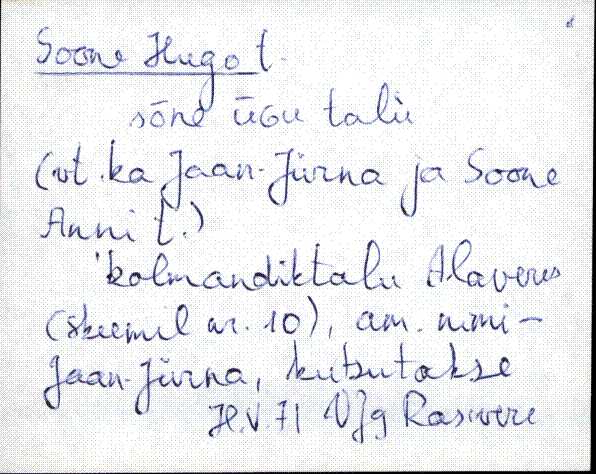 Soone Hugo t.
sōne ūGu talu
(vt. ka Jaan-Jürna ja Soone
Anni t.)
'kolmandiktalu Alaveres
(skeemil nr. 10), am. nimi -
Jaan-Jürna, kutsutakse
H.V. 71 VJg Rasivere